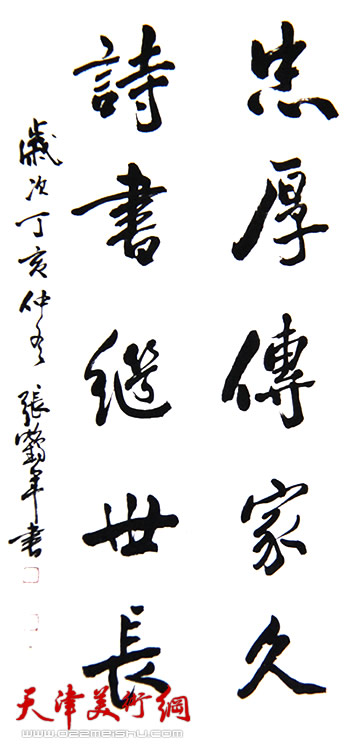 忠厚傳家久
詩書继世長
歲次丁亥仲冬 張鶴年書
天津美術網
www.022meishu.com